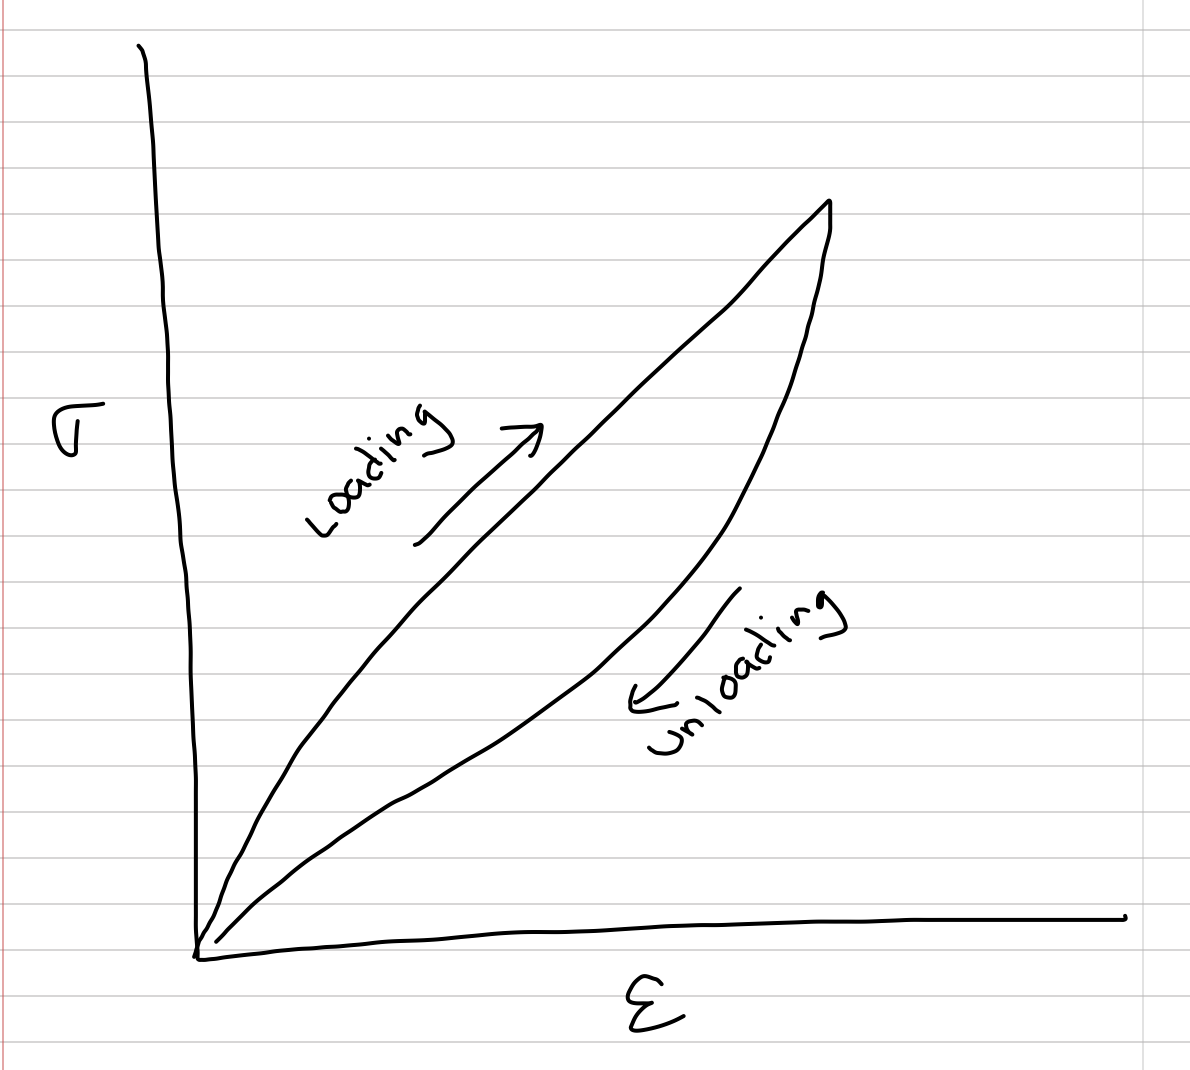 σ
Loading
Unloading
ε